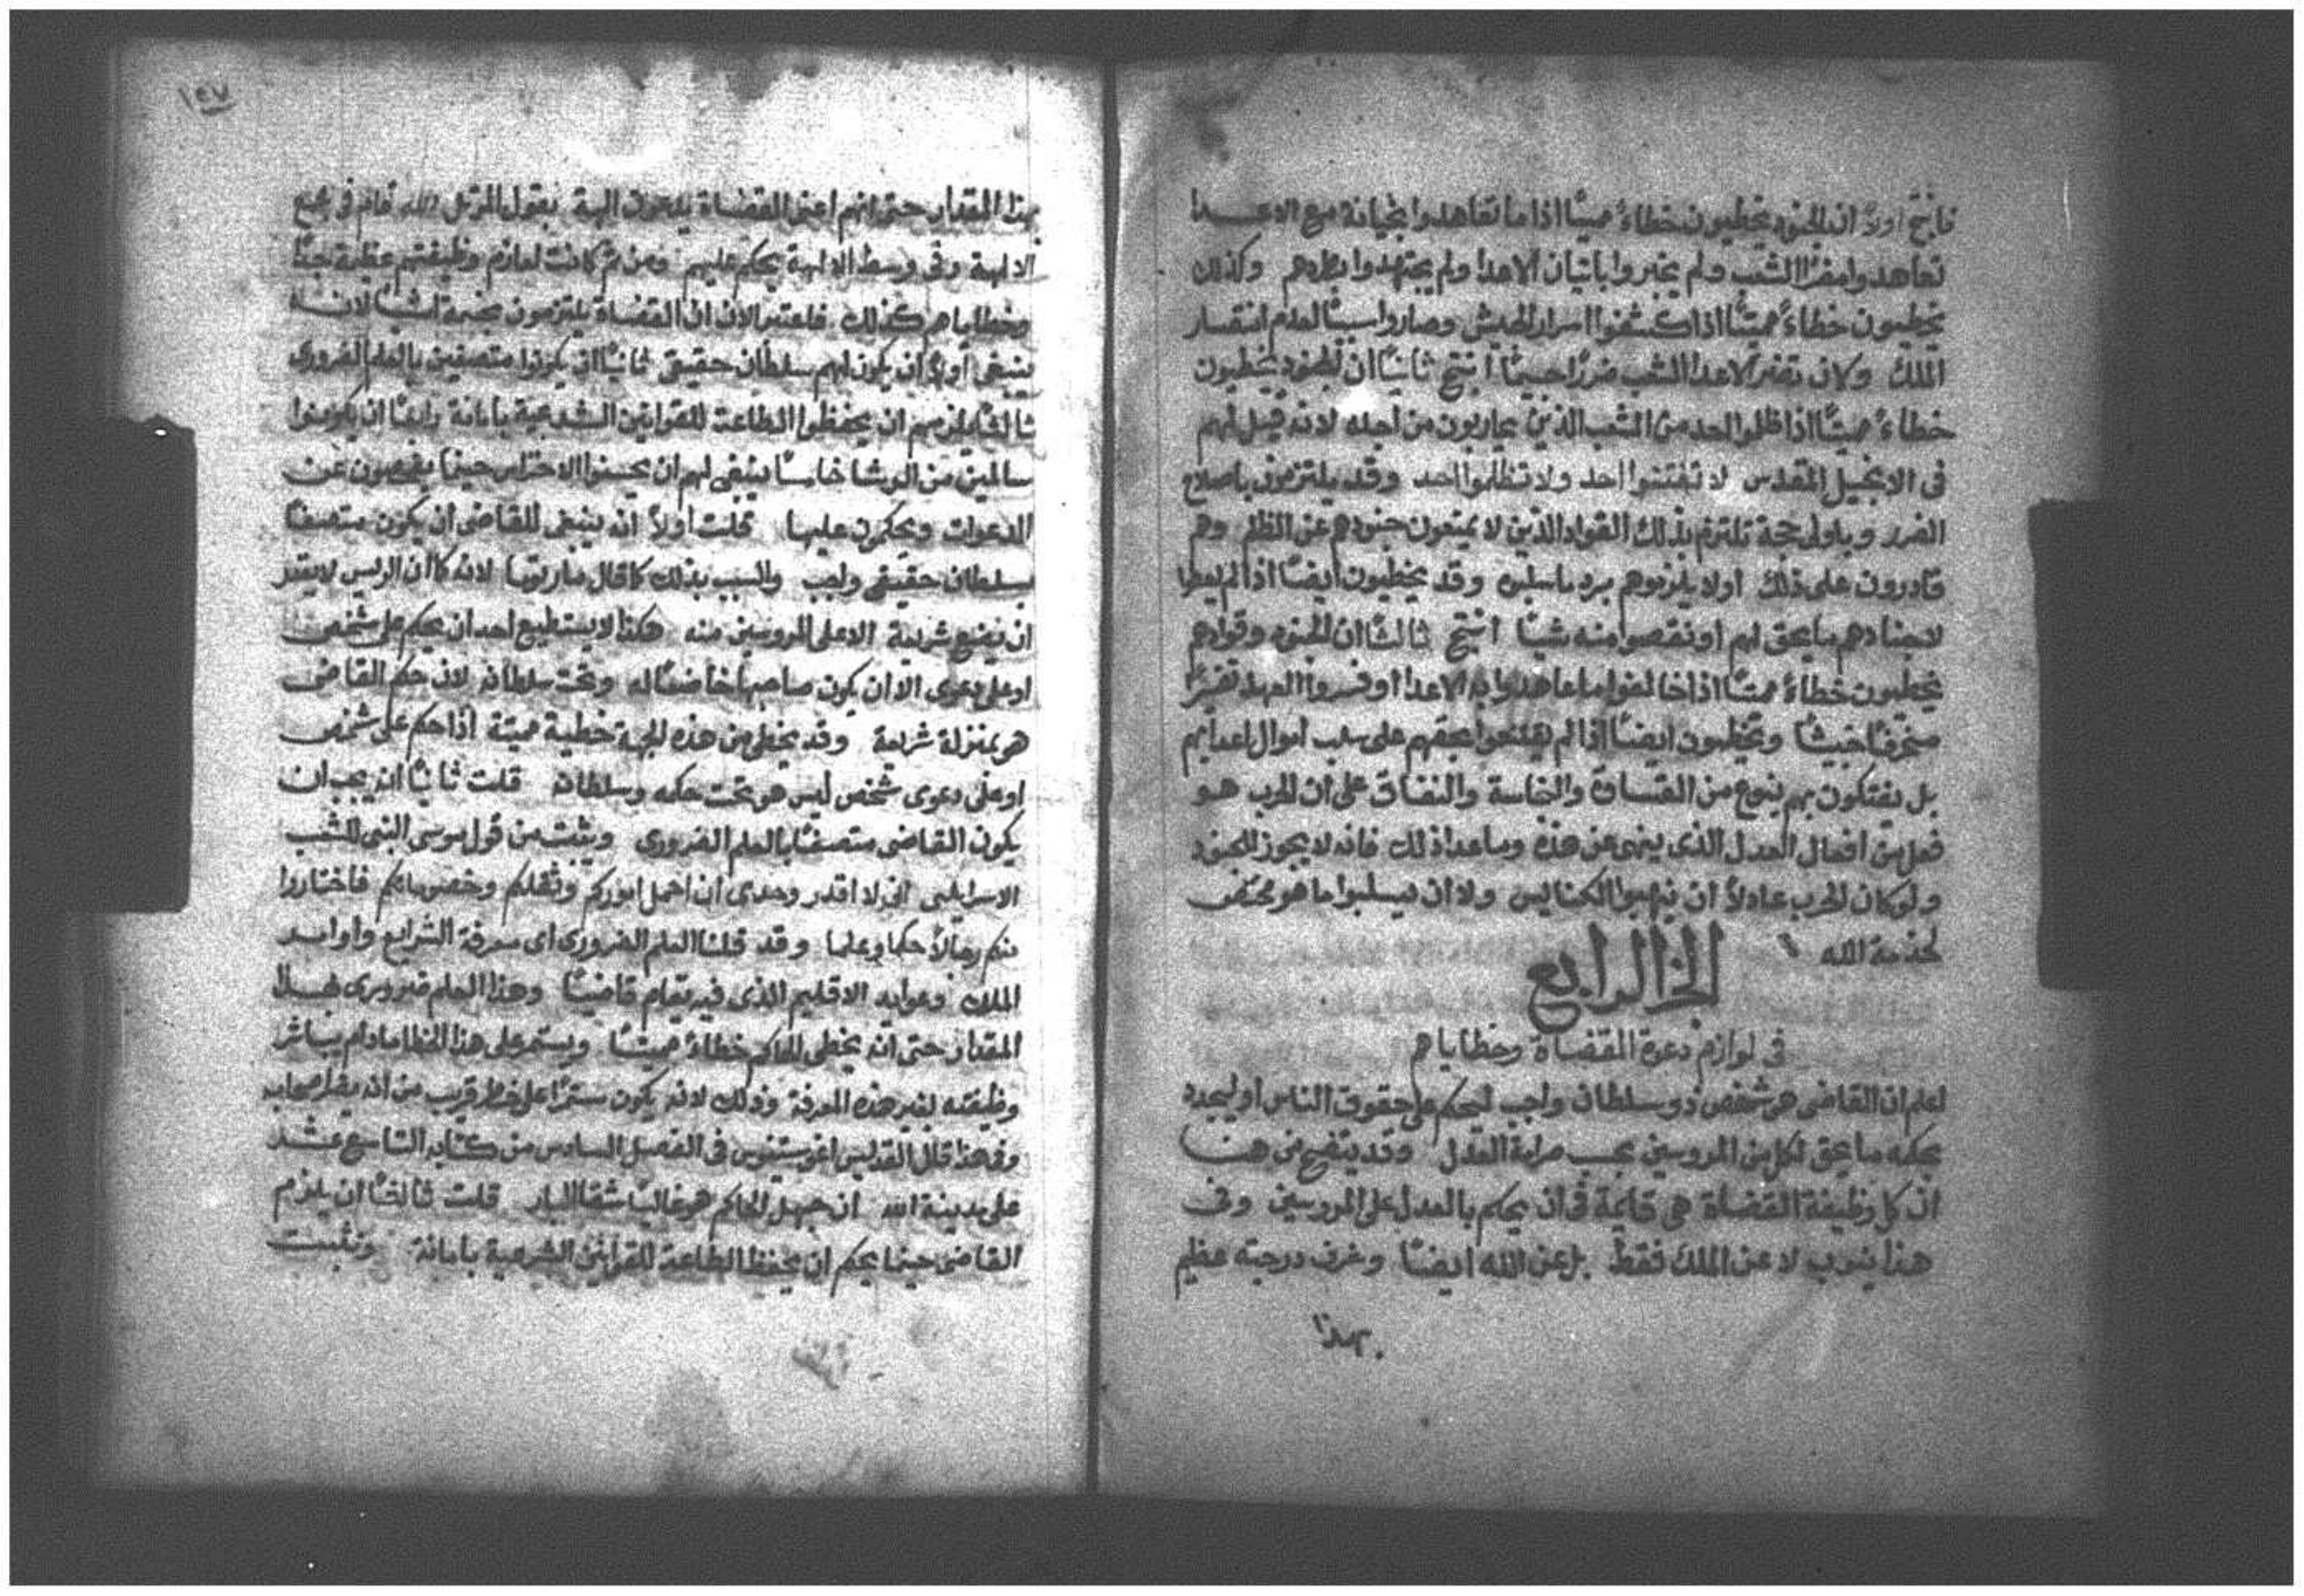 فانتج اولاً ان الجنود يخطيون خطاءً مميتًا اذا ما تعاهدوا بخيانة مع الاعدا
تعاهدوا مضرًا الشعب ولم يخبروا باتيان الاعدا ولم يجتهدوا بطردهم وكذلك
يخطيون خطاءً مميتًا اذا كشفوا اسرار الجيش وصاروا سببًا لعدم انتصار
الملك ولان تضر الاعدا الشعب ضررًا جسيمًا انتج ثانيًا ان الجنود يخطيون
خطاءً مميتًا اذا ظلموا احد من الشعب الذين يحاربون من اجله لانه قيل لهم
فى الانجيل المقدس لا تفتنوا احد ولا تظلموا احد وقد يلتزمون باصلاح
الضرر وباولى حجة تلتزم بذلك القواد الذين لا يمنعون جنودهم عن الظلم وهم
قادرون على ذلك اولا يلزموهم برد ما سلبوه وقد يخطيون ايضًا اذا لم يعطوا
لاجنادهم ما يحق لهم او نقصوا منه شيا انتج ثالثًا ان الجنود وقوادهم
يخطيون خطاءً مميتًا اذا خالفوا ما عاهدوا به الاعدا او فسروا العهد تفسيرًا
منحرفًا خبيثًا ويخطيون ايضًا اذا لم يقنعوا بحقهم على سلب اموال اعدايهم
بل يفتكون بهم بنوع من القساوة والنفاق على ان الحرب هو
فعل من افعال العدل الذى ينهى عن هذه وما عدا ذلك فانه لا يجوز للجنود
ولو كان الحرب عادلاً ان ينهبوا الكنايس ولا ان يسلبوا ما هو مختص
لخدمة الله
الرابع
فى لوازم دعوة القضاة وخطاياهم
اعلم ان القاضى هو شخص ذو سلطان واجب ليحكم على حقوق الناس او ليحدد
بحكمه ما يحق لكل من المروسين بحسب مراية العدل وقد يتضح من هنا
ان كل وظيفة القضاة هى قايمة فى ان يحكم بالعدل على المروسين وفى
هذا ينوب لا عن الملك فقط بل عن الله ايضًا وشرف درجته عظيم
بهذا
١٤٧
بهذا المقدار حتى انهم اعنى القضاة يدعون الهة بقول المرتل الله قام فى مجمع
الالهة وفى وسط الالهة يحكم عليهم ومن ثم كانت لوازم وظيفتهم عظيمة جدًا
وخطاياهم كذلك فلنعتبر الان ان القضاة يلتزمون بخمسة اشيا لانه
ينبغى اولاً ان يكون لهم سلطان حقيقى ثانيًا ان يكونوا متصفين بالعلم الضرورى
ثالثًا يلزمهم ان يحفظوا الطاعة للقوانين الشرعية بامانة رابعًا ان يكونوا
سالمين من الرشا خامسًا ينبغى لهم ان يحسنوا الاحتراس حينما يفحصون عن
الدعوات ويحكمون عليها قلت اولاً انه ينبغى للقاضى ان يكون متصفًا
بسلطان حقيقى واجب والسبب بذلك كما قال مار توما لانه كما ان الريس لا يقدر
ان يضع شريعة الا على المروسين منه هكذا لا يستطيع احد ان يحكم على شخص
او على دعوى الا ان يكون صاحبها خاضعًا له وتحت سلطانه لان حكم القاضى
هو بمنزلة شريعة وقد يخطى من هذه الجهة خطية مميتة اذا حكم على شخص
او على دعوى شخص ليس هو تحت حكمه وسلطانه قلت ثانيًا انه يجب ان
يكون القاضى متصفًا بالعلم الضرورى ويثبت من قول موسى النبى للشعب
الاسرايلى انى لا اقدر وحدى ان احمل اموركم وثقلكم وخصوماتكم فاختاروا
منكم رجالاً حكما وعلما وقد قلنا العلم الضرورى اى معرفة الشرايع واوامر
الملك وعوايد الاقليم الذى فيه يقام قاضيًا وهذا العلم ضرورى بهذا
المقدار حتى انه يخطى الحاكم خطاءً مميتًا ويستمر على هذا الخطا ما دام يباشر
وظيفته بغير هذه المعرفة وذلك لانه يكون مستمرًا على خطر قريب من انه يضر اصحابه
وفى هذا قال القديس اغوستينوس فى الفصل السادس من كتابه التاسع عشر
على مدينة الله ان جهل الحاكم هو غالبًا شقا البار قلت ثالثًا ان يلزم
القاضى حينما يحكم ان يحفظ الطاعة للقوانين الشرعية بامانة ويثبت